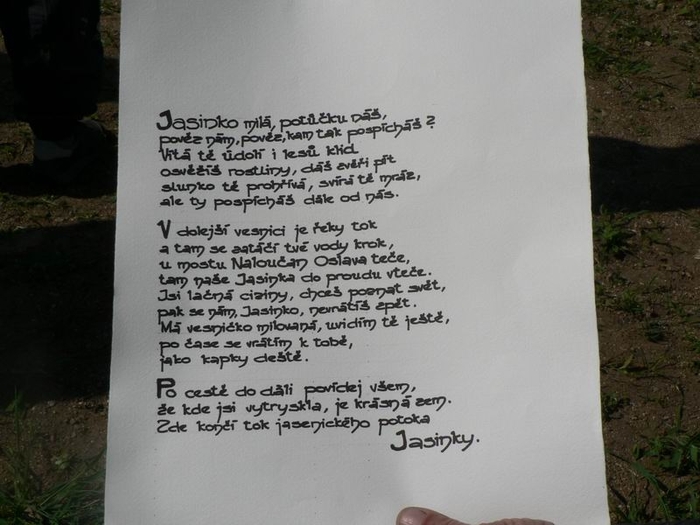 Jasinko milá, potůčku náš,
pověz nám, pověz, kam tak pospícháš?
Vítá tě údolí i lesů klid
osvěžíš rostliny, dáš zvěři pít
slunko tě prohřívá, svírá tě mráz,
ale ty pospícháš dále od nás.
V dolejší vesnici je řeky tok
a tam se zatáčí tvé vody krok,
u mostu Naloučan Oslava teče,
tam naše Jasinka do proudu vteče.
Jsi lačná ciziny, chceš poznat svět,
pak se nám, Jasinko, nevrátíš zpět.
Má vesničko milovaná, uvidím tě ještě,
po čase se vrátím k tobě,
jako kapky deště.
Po cestě do dáli povídej všem,
že kde jsi vytryskla, je krásná zem.
Zde končí tok jasenického potoka
Jasinky.